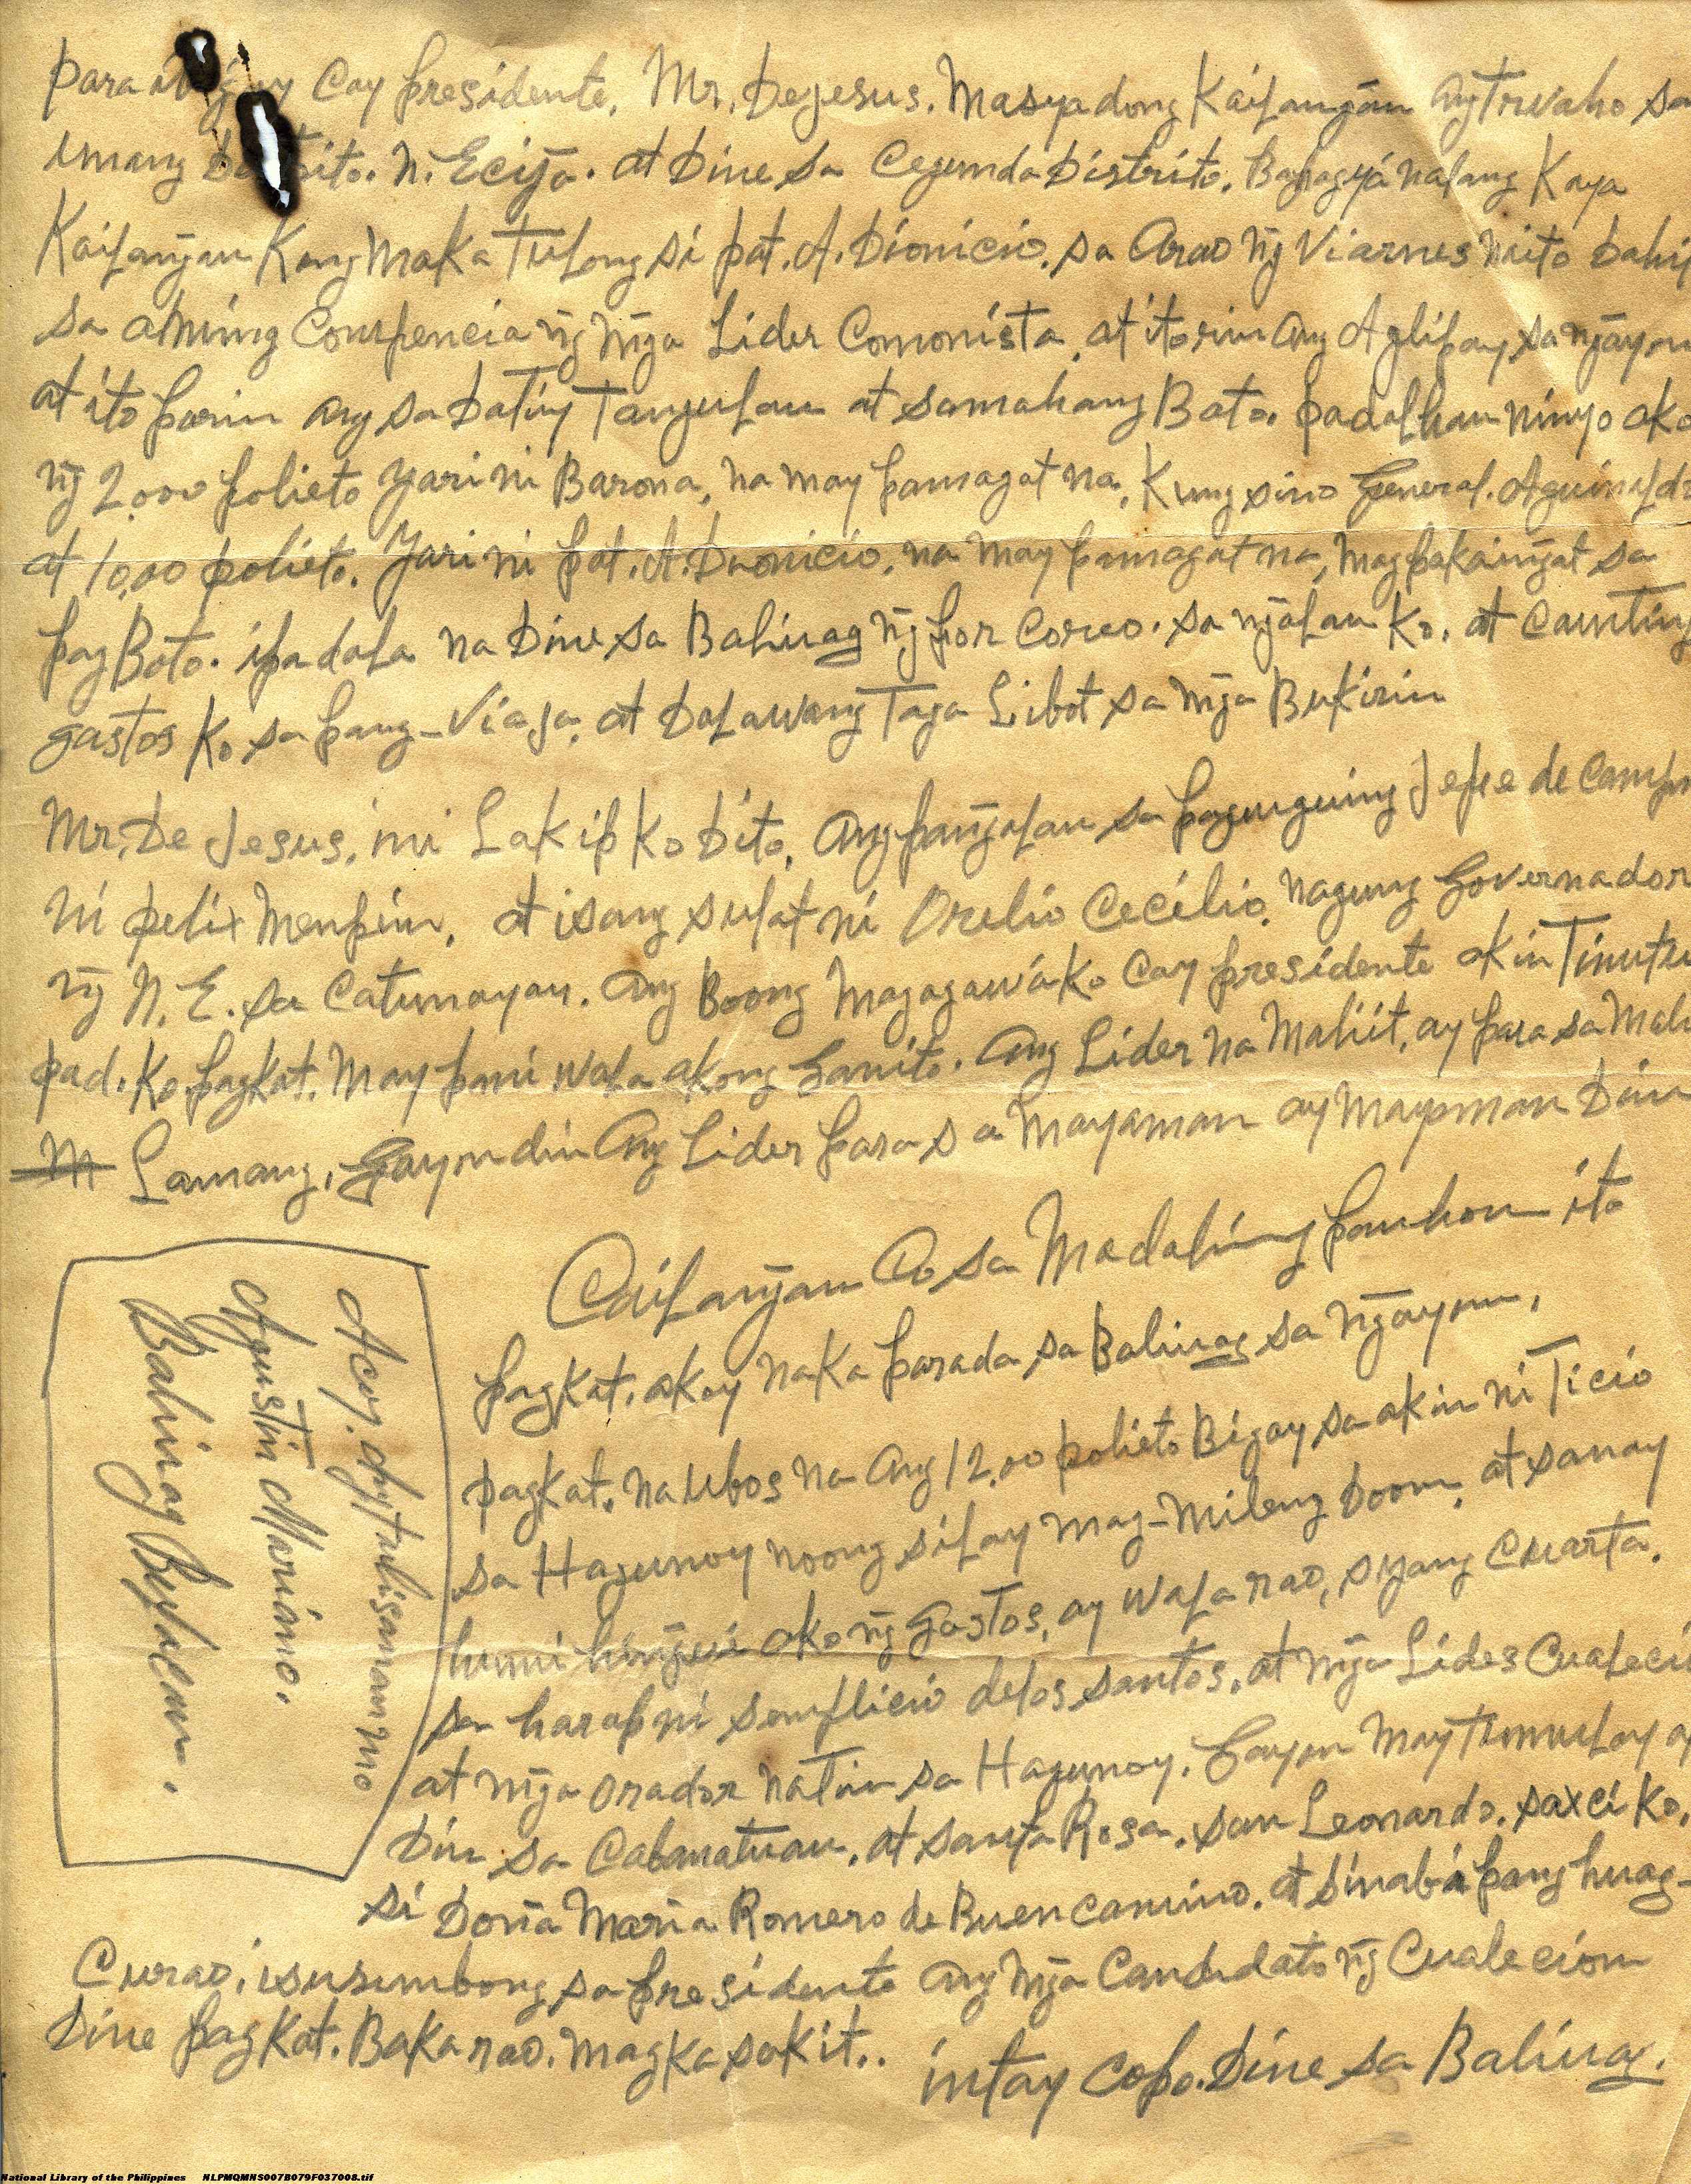 para Cay presidente, Mr, Dejesus. Masyadong Kailangan ang Trvaho sa
N. Ecija. at Dine sa Cegunda Distrito, Bahagya nalang Kaya
Kailangan Kong Maka Tulong si pat. A. Dionicio. sa Arao ng Viarnes naito Dahil
sa aming Conspencia ng mga Lider Comonista, at itorin ang Aglipay, sa ngayon
at ito parin ang sa Dating Tangulan at samahang Bato. padalhan ninyo ako
ng 2,000 polieto yari ni Barona, na may pamagat na, Kung sino General. Aguinaldo
at 10,00 polieto. Yari ni pat. A. Dionicio, na may pamagat na, Magpakaingat sa
pag Boto. ipadala na Dine sa Baliuag ng por Coreo. sa ngalan Ko. at Caunting
gastos Ko sa pang-Viaje. at Dalawang Taga Libot sa mga Bukirin
Mr, De Jesus, mi Lakip Ko Dito, ang pangalan sa pag Jefe de Campo
ni pelix Menpin, at isang sulat ni Orelio Cecilio, naging Governador
ng N. E. sa Catunayan. ang Boong Magagawa Ko Cay presidente akin Tinutu
pad. Ko pagkat. May pani wala akong Ganito. ang Lider na Maliit, ay para sa Mali
Lamang, Gayondin ang Lider para sa Mayaman ay Mayaman Din
Cailangan Co sa Madaling panhon ito
pagkat. akoy naka parada sa Baliuag sa ngayon,
pagkat. na Ubos na ang 12,00 polieto Bigay sa akin ni Ticio
sa Hagunoy noong silay mag-Mileng Doon, at sanay
humihingi ako ng Gastos, ay wala rao, siyang Cuarta.
sa harap ni semplicio delos santos, at mga Lides Cualeci
at mga orador natin sa Hagunoy. Gayon May Tumulay
Din sa Cabanatuan, at santa Rosa. san Leonardo. saxci Ko.
si Doña Maria Romero de Buencamino. at sinabi pang huag
Curao, isusumbong sa presidente ang mga Candidato ng Cualecion
Dine pagkat. Baka rao. magka sakit..
intay Copo. Dine sa Baliuag.
Acoy. ang
Agustin Mariano.
Baliuag Bulacan.